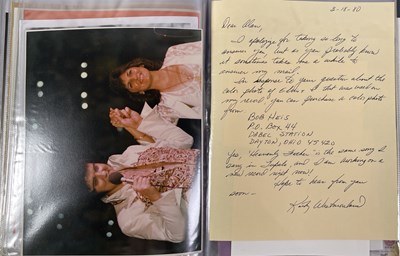 5-18-80
Dear Alan,
I apologize for taking so long to
answer you, but as you probably know
it sometimes takes me a while to
answer my mail.
In response to your question about the
color photo of Elvis & I that was used on
my record you can purchase a color photo
from
BOB HEIS
P.O. BOX 44
DABEL STATION
DAYTON, OHIO 45420
Yes, "Heavenly Father" is the same song I
sang in Tupelo, and I am working on a
new record right now!
Hope to hear from you
soon -
Kathy Westmoreland